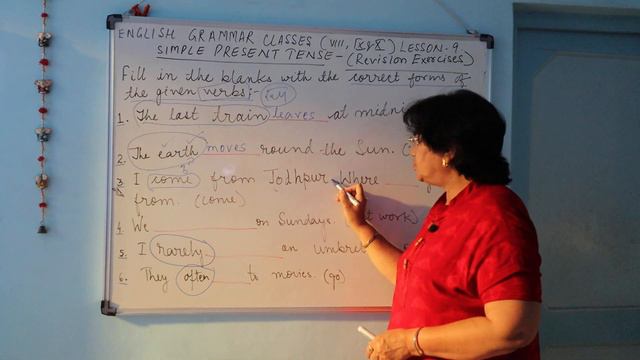 ENGLISH GRAMMAR CLASSES (VIII, IX & X) LESSON-9.
SIMPLE PRESENT TENSE - (Revision Exercises)
Fill in the blanks with the correct forms of
the given verbs:-
1. The last train leaves at
2. The earth moves round the Sun.
3. I come from Jodhpur. Where
from. (come)
4. We on Sundays. work)
5. I rarely an
6. They often to movies. (go)